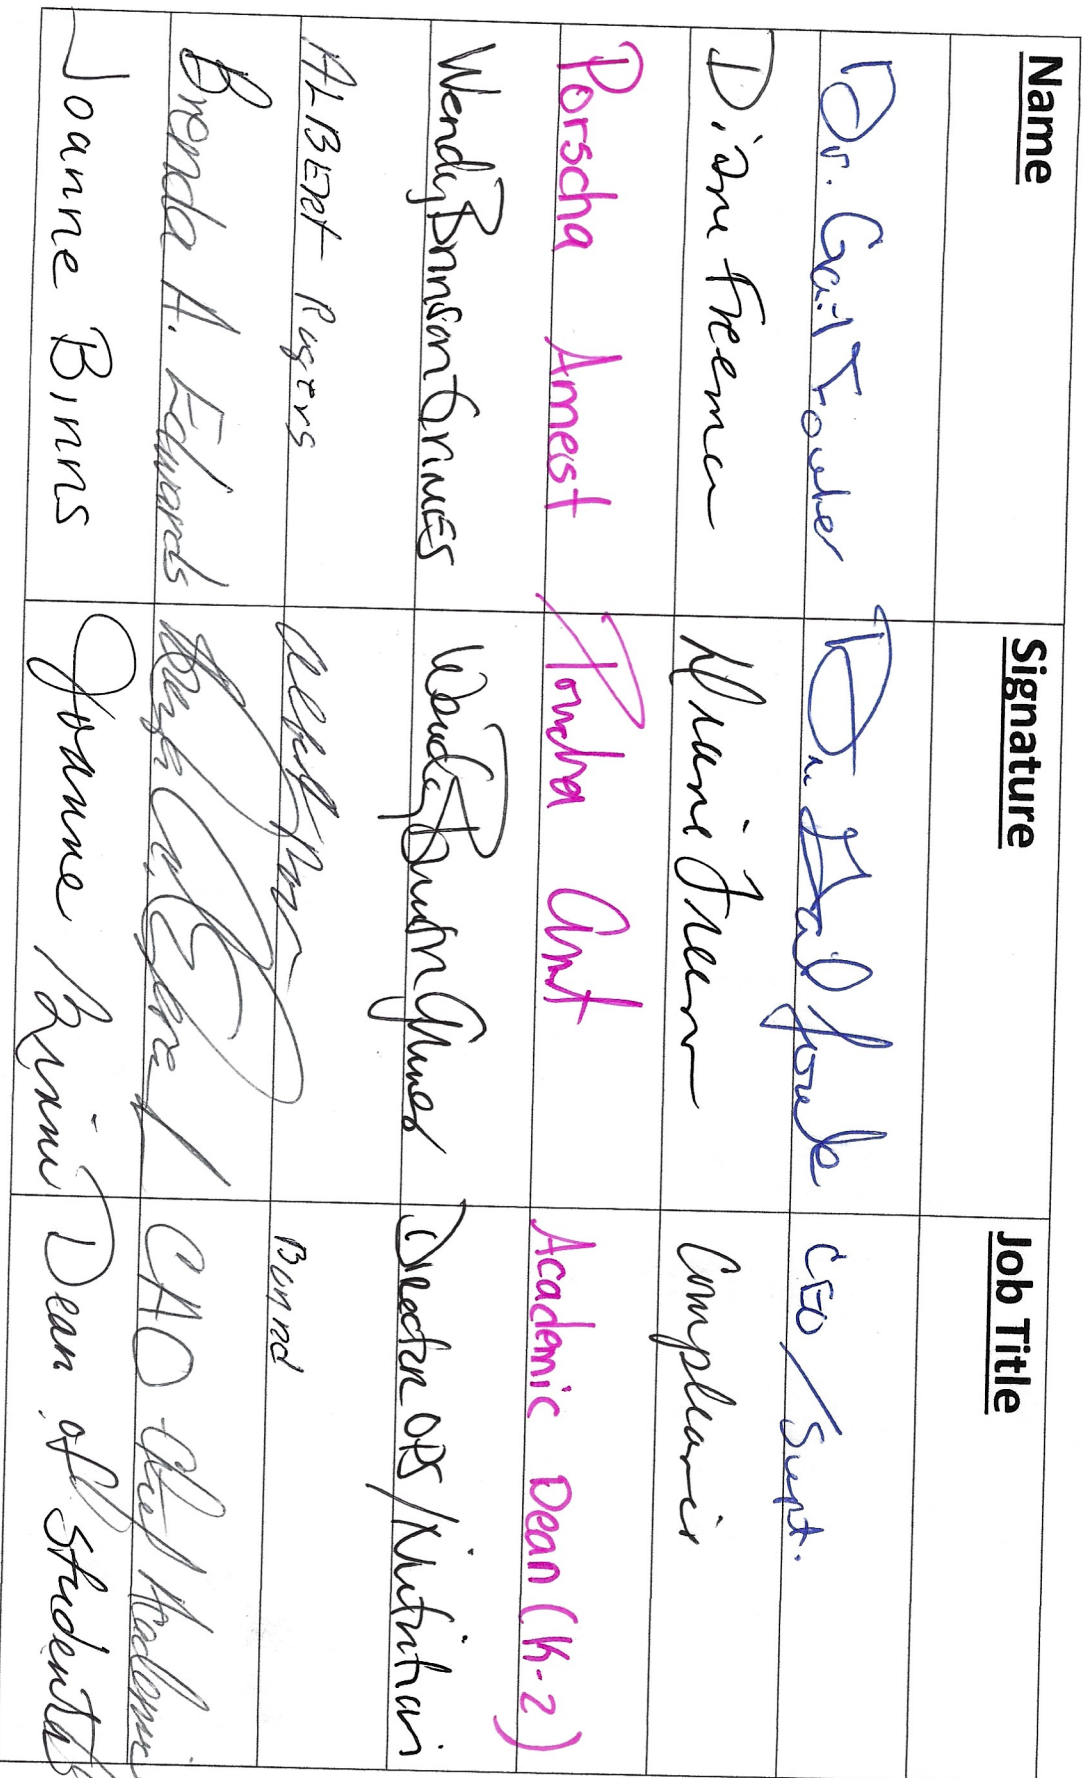 Name Signature Job Title
Dr. Gail Fowler Dr. Gail Fowler CEO / Supt.
Diane Freeman Diane Freeman
Porscha Amest Porscha Academic Dean (K-2)
Wendy Brinson Grimes Wendy Brinson Grimes Director OPS / Nutrition
ALBERT Rogers Albert
Brenda A. Edwards Brenda CAO Chief Academic
Joanne Binns Joanne Binns Dean of Students